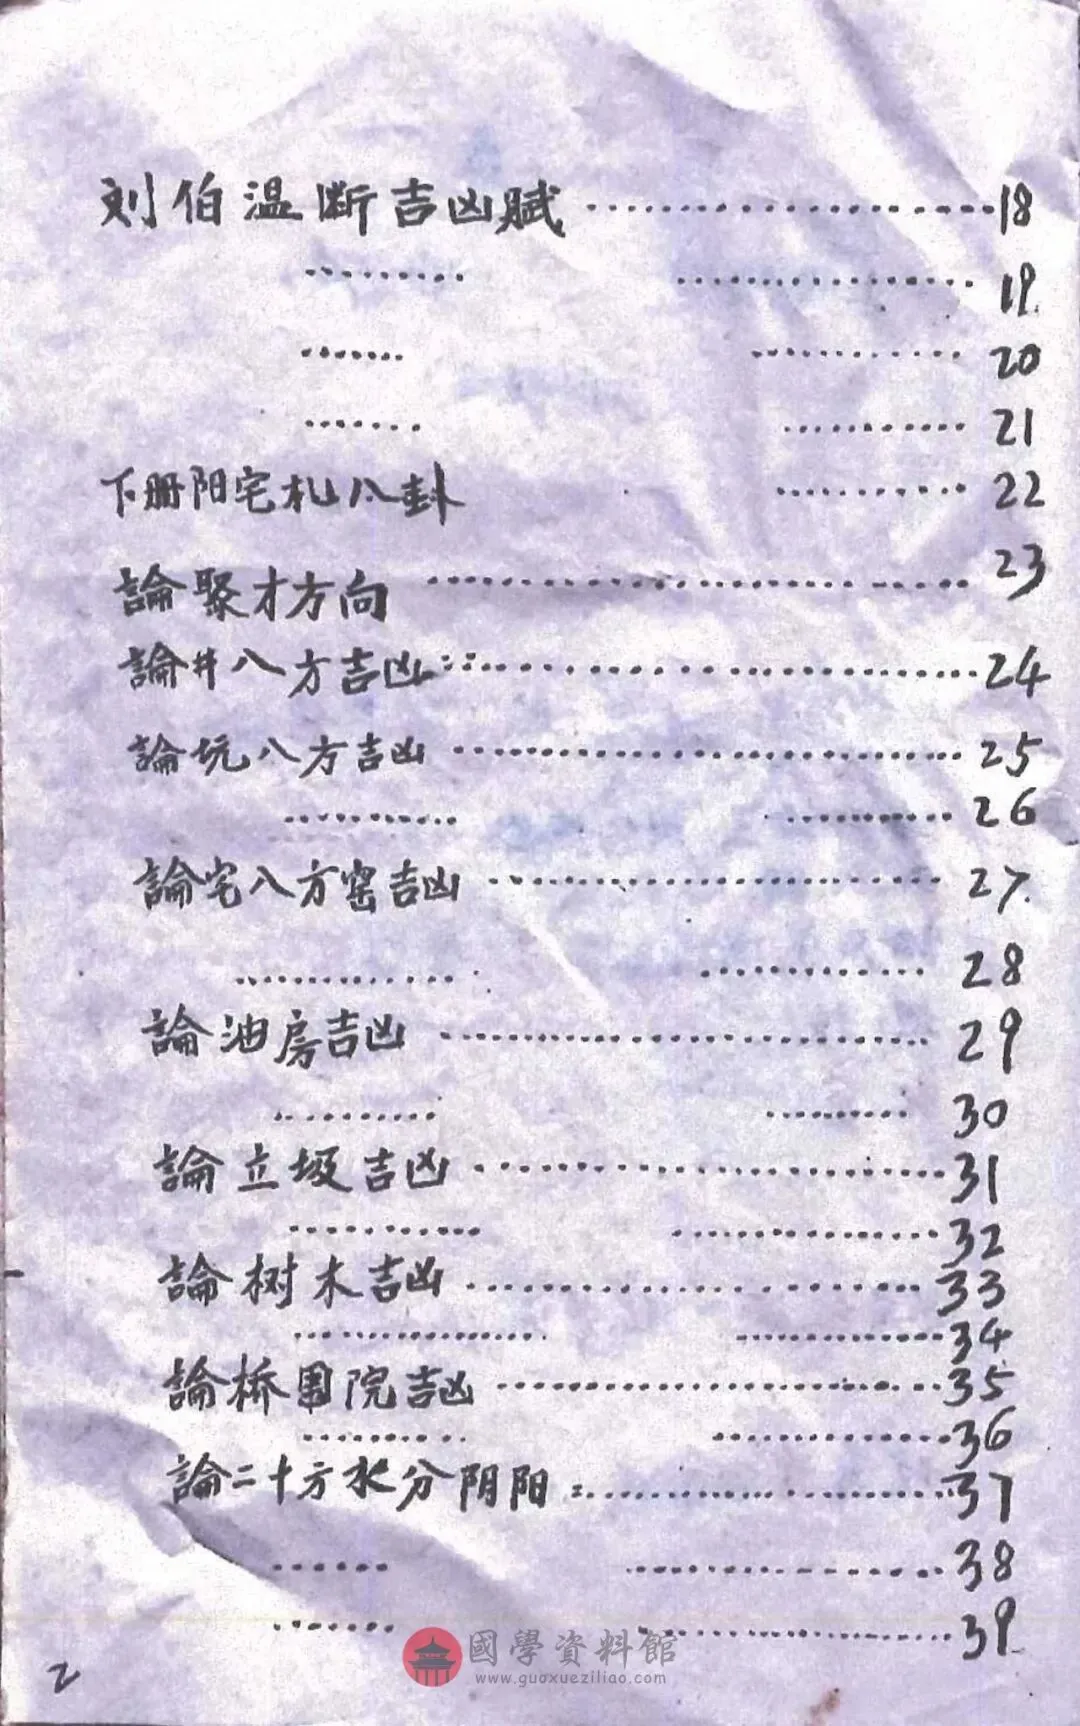 刘伯温断吉凶赋……………18
………  ………19.
……  ………20
……  ………21
下册阳宅札八卦  ………22
論聚才方向……………23
論井八方吉凶……………24
論坑八方吉凶……………25
………  ………26
論宅八方窑吉凶……………27.
………  ………28
論油房吉凶……………29
………  ………30
論立圾吉凶……………31
………  ………32
論树木吉凶……………33
………  ………34
論桥围院吉凶……………35
………  ………36
論二十方水分阴阳:……………37
……  ………38
……  ………39
國學資料館
www.guoxueziliao.com
2